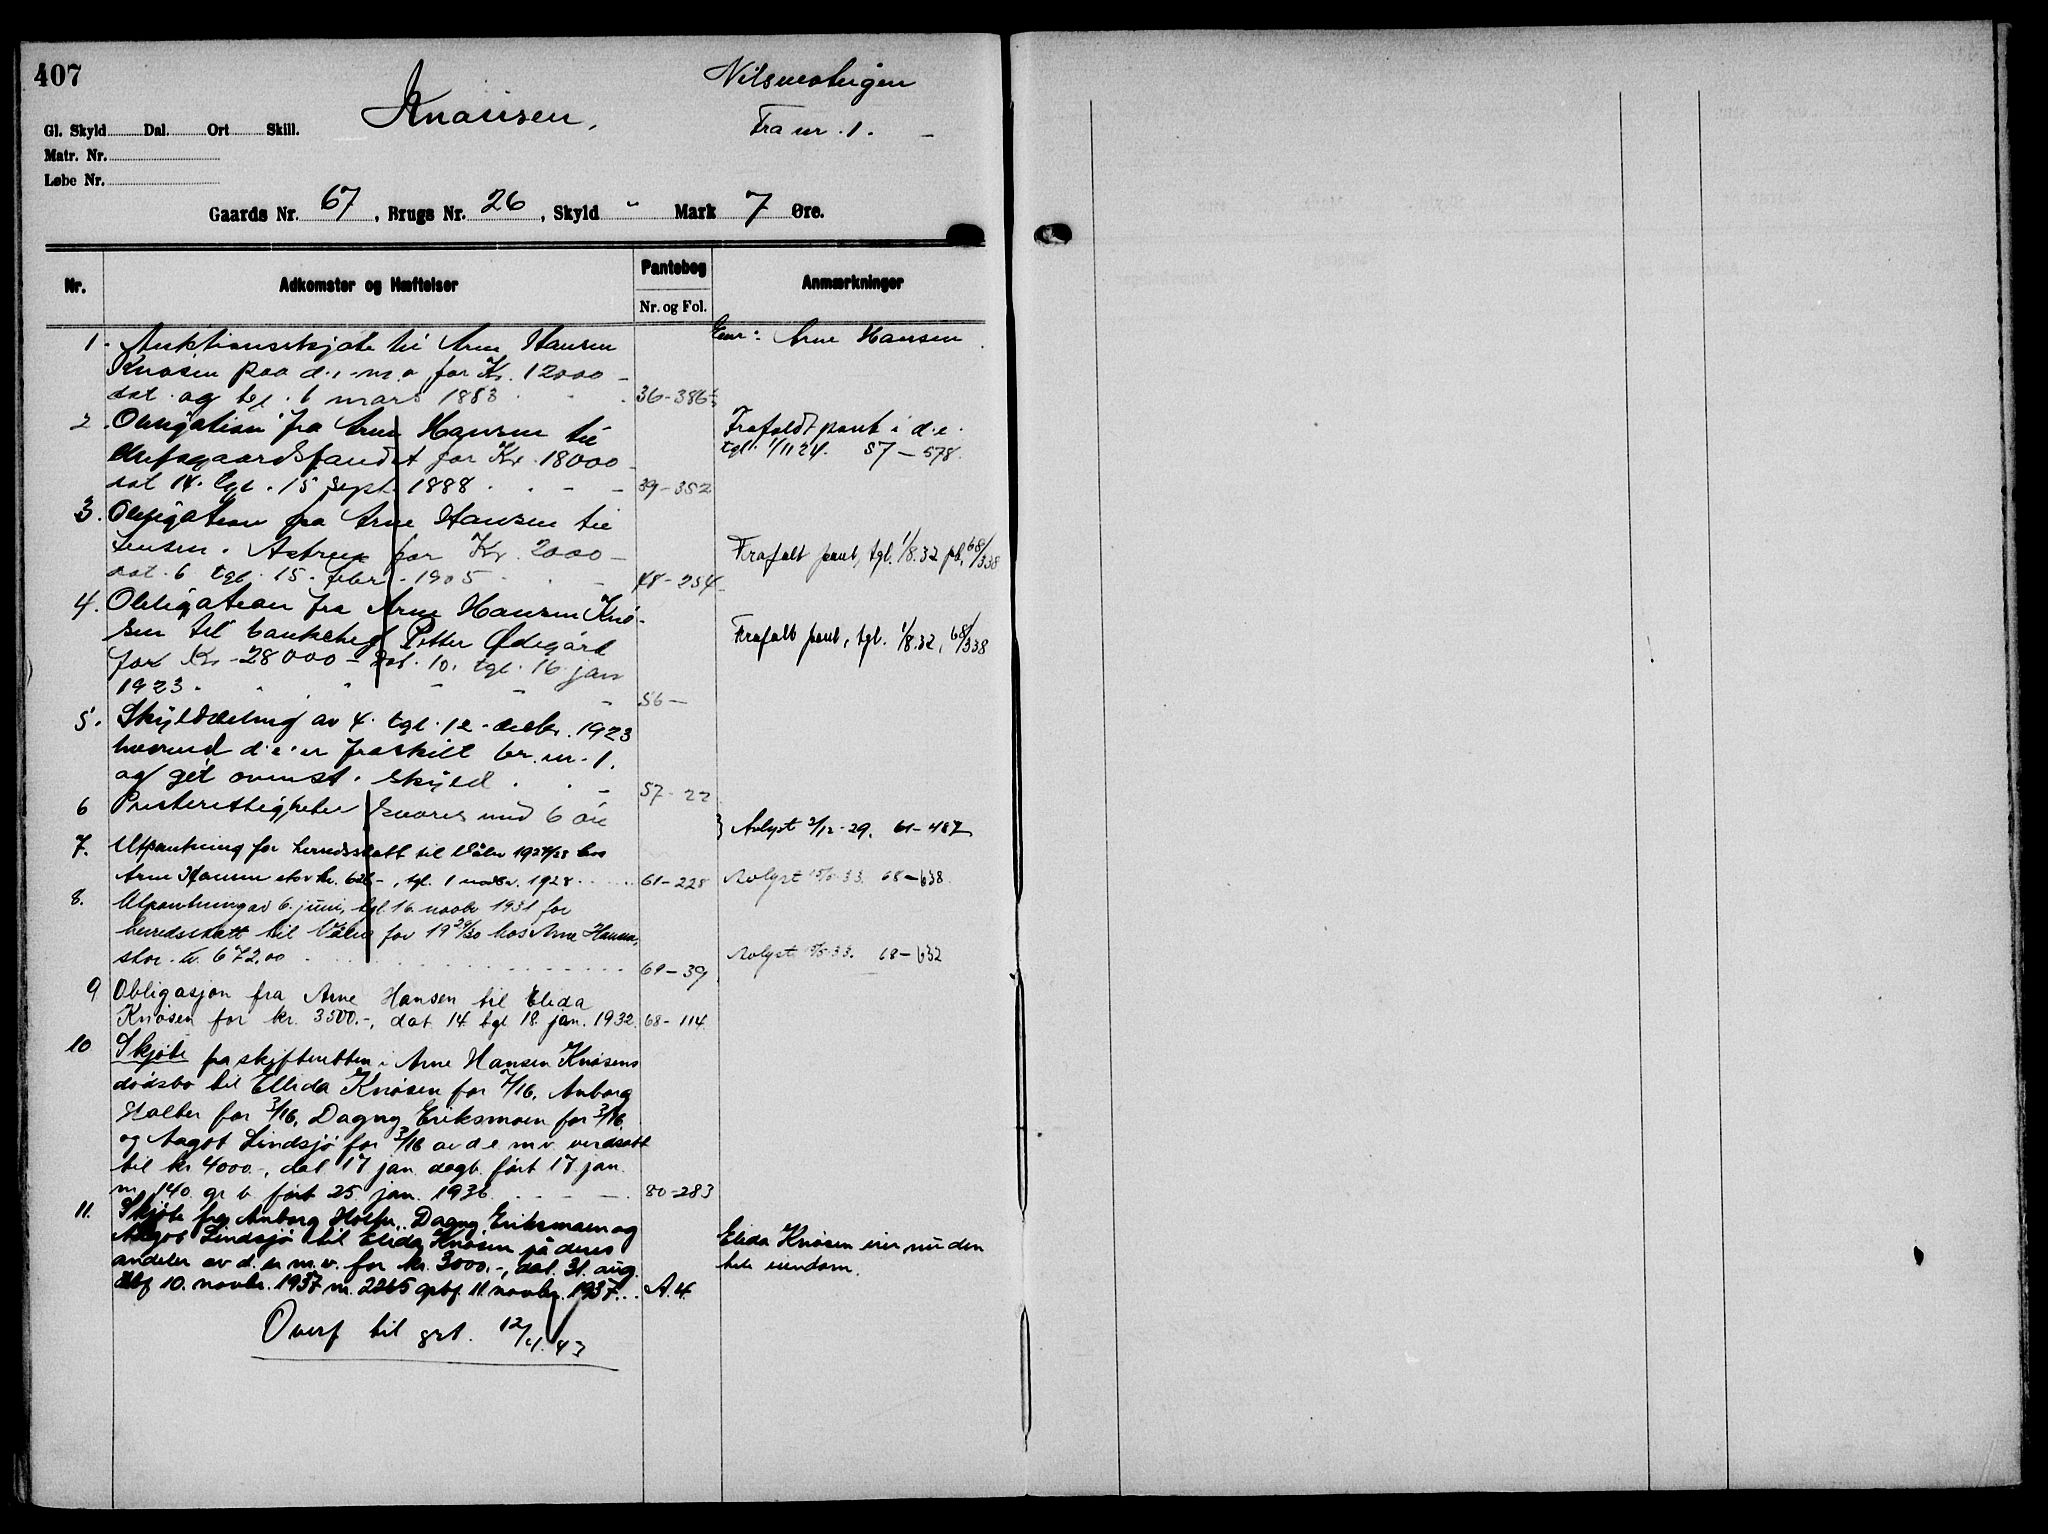 407
Knøisen,
Nilsmotngen
Fra nr. 1. –
Gl. Skyld Dal. Ort Skill.
Matr. Nr.
Løbe Nr.
Gaards Nr. 67, Brugs Nr. 26, Skyld " Mark 7 Øre.
Nr. Adkomster og Hæftelser Pantebog Anmærkninger
Nr. og Fol.
1. Auktionsskjøte til Arne Hansen Eier: Arne Hansen
Knøsen paa d.e. m.v. for Kr. 12000 –
dat. og tgl. 6 mars 1883 36 – 386
2. Obligation fra Arne Hansen til Frafaldt pant i d.e.
for Kr. 18000 – tgl. 1/11 24. 57 – 578.
dat 14. tgl. 15 sept. 1888 39 – 352
3. Obligation fra Arne Hansen til
Jensen. Astrup for Kr. 2000 – Frafalt pant, tgl. 1/8.32 pb. 68/338
dat. 6 tgl. 15. febr. 1905 48 – 254
4. Obligation fra Arne Hansen Knø-
sen til bankchef Petter Ødegård Frafalt pant, tgl. 1/8.32, 68/338
for Kr. 28000 – dat. 10. tgl. 16 jan
1923. 56 –
5. Skylddeling av 4. tgl. 12. decbr. 1923
hvorved d.e. er fraskilt br. nr. 1.
og git ovenst. skyld 57 – 22
6 Presterettigheter svares med 6 øre } Avlyst 2/12-29. 61 – 487
7. Utpantning for herredsskatt til Våler 1927/28 hos
Arne Hansen stor kr. 626 –, tgl. 1 novbr. 1928 61 – 228 Avlyst 15/5-33. 68 – 638.
8. Utpantning av 6. juni, tgl. 16. novbr 1931 for
herredsskatt til Våler for 1929/30 hos Arne Hansen,
stor kr. 672,00 61 – 39 Avlyst 15/5-33. 68 – 632
9 Obligasjon fra Arne Hansen til Elida
Knøsen for kr. 3500.–, dat. 14 tgl. 18. jan. 1932. 68 – 114.
10 Skjøte fra skifteretten i Arne Hansen Knøsens
dødsbo til Ellida Knøsen for 7/16, Anborg
Holter for 3/16, Dagny Eriksmoen for 3/16,
og Aagot Lindsjø for 3/16 av d e m.v. verdsatt
til kr 4000.–, dat 17 jan. dagb. ført 17. jan.
nr. 140. gr b. ført 25. jan. 1936 80 – 283
11. Skjøte fra Anborg Holter, Dagny Eriksmoen og
Aagot Lindsjø til Elida Knøsen på deres Elida Knøsen eier nu den
andeler av d. e. m. v. for kr. 3000.–, dat. 31. aug. hele eiendom.
dbf 10. novbr. 1937 nr. 2265 grbf. 11 novbr. 1937. A. 4.
Overf til grt. 12/4.43